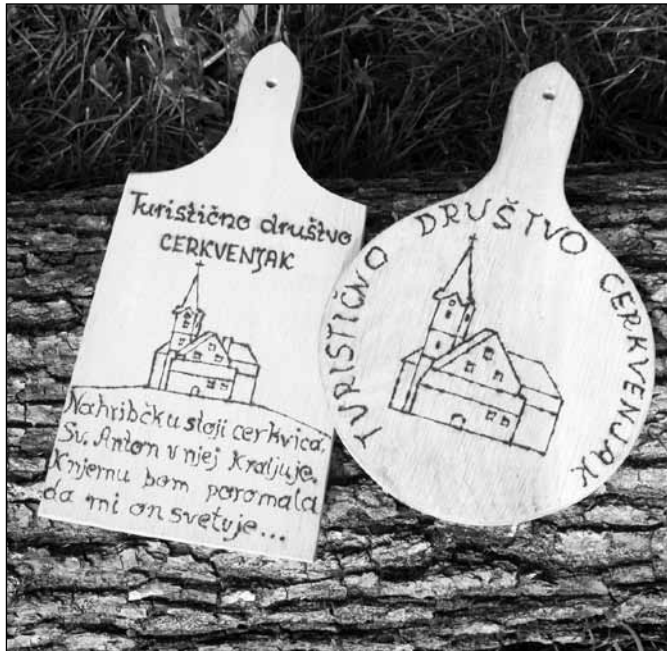 Turistično društvo
CERKVENJAK
Na hribčku stoji cerkvica,
Sv. Anton v njej kraljuje.
K njemu bom poromala
da mi on svetuje...
TURISTIČNO DRUŠTVO CERKVENJAK